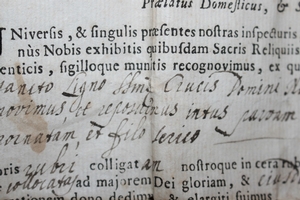 Prælatus Domesticus, &
Niversis, & singulis præsentes nostras inspecturis
nùs Nobis exhibitis quibusdam Sacris Reliquiis
enticis, sigilloque munitis recognovimus, ex qu
Ligno SSmæ Crucis Domini
intus
ornatam, et filo serico
oris rubri colligatam nostroque in cera
collocata, ad majorem Dei gloriam, &
ationem dono dedimus, elargiti sumus